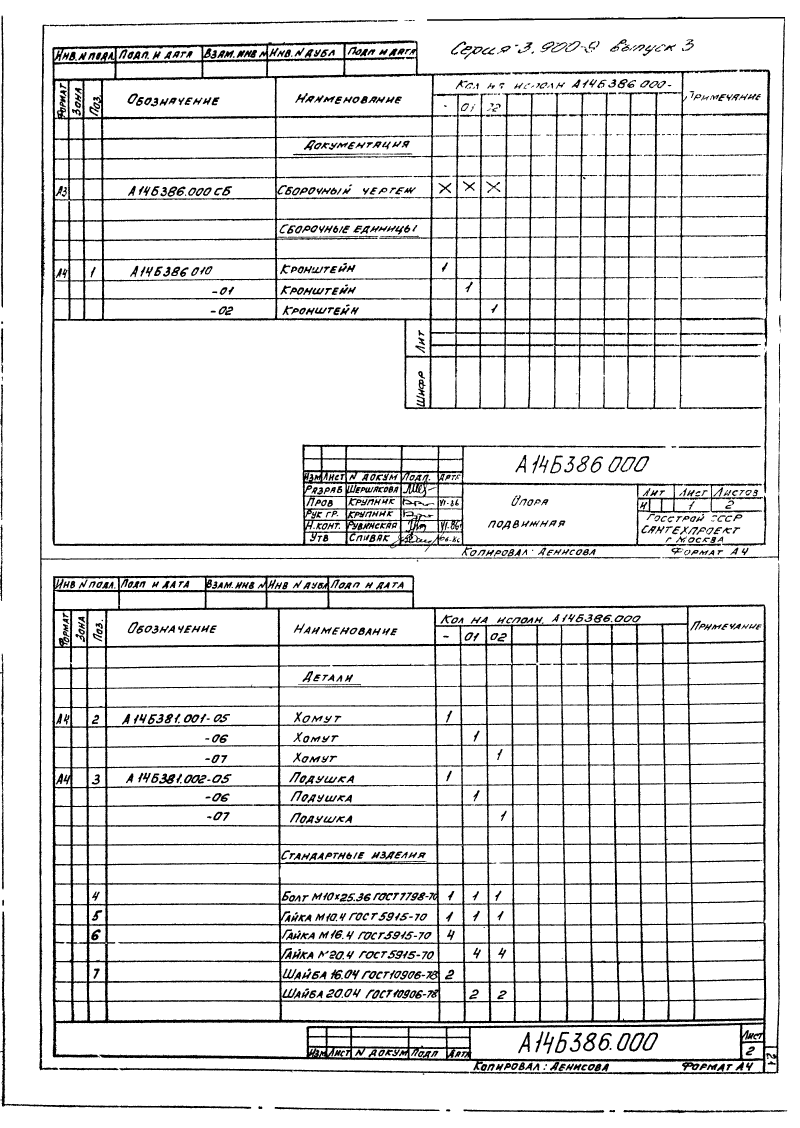 Серия 3.900-9 выпуск 3
Инв. N подл. Подп. и дата Взам. инв N Инв. N дубл Подп и дата
Формат Зона Поз. Обозначение Наименование Кол на исполн А14Б386.000- Примечание
- 01 02
Документация
А3 А14Б386.000 СБ Сборочный чертеж X X X
Сборочные единицы
А4 1 А14Б386 010 Кронштейн 1
-01 Кронштейн 1
-02 Кронштейн 1
Лит
Шифр
А14Б386 000
Изм Лист N докум Подп. Дата
Разраб Шершакова
Пров Крупник VI-86
Рук гр. Крупник
Н.конт. Рувинская VI.86
Утв Спивак
Опора подвижная
Лит Лист Листов
И 1 2
Госстрой СССР
Сантехпроект
г Москва
Копировал: Денисова Формат А4
Инв N подл. Подп и дата Взам. инв N Инв N дубл Подп и дата
Формат Зона Поз. Обозначение Наименование Кол на исполн. А14Б386.000 Примечание
- 01 02
Детали
А4 2 А14Б381.001-05 Хомут 1
-06 Хомут 1
-07 Хомут 1
А4 3 А14Б381.002-05 Подушка 1
-06 Подушка 1
-07 Подушка 1
Стандартные изделия
4 Болт М10×25.36 ГОСТ7798-70 1 1 1
5 Гайка М10.4 ГОСТ5915-70 1 1 1
6 Гайка М16.4 ГОСТ5915-70 4
Гайка М20.4 ГОСТ5915-70 4 4
7 Шайба 16.04 ГОСТ10906-78 2
Шайба 20.04 ГОСТ10906-78 2 2
Изм Лист N докум Подп Дата
А14Б386.000
Лист
2
21
Копировал: Денисова Формат А4